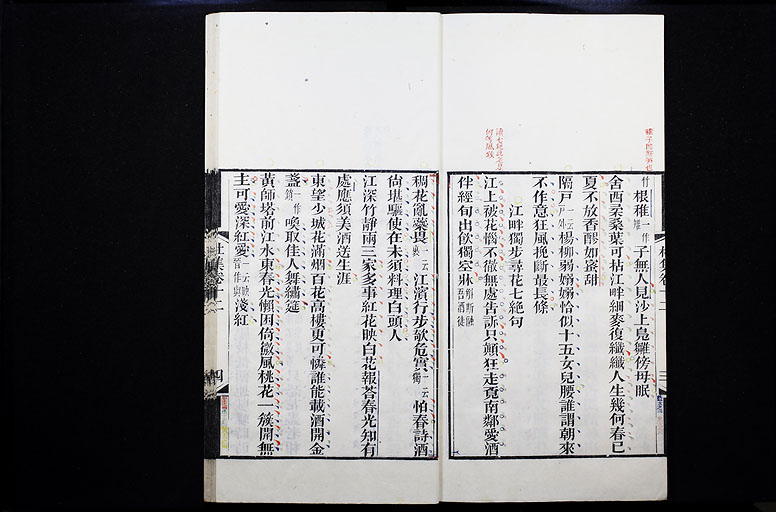 根稚一作雉子無人見沙上鳧雛傍母眠
舍西柔桑葉可拈江畔細麥復纖纖人生幾何春已
夏不放香醪如蜜甜
隔戶楊柳弱嫋嫋恰似十五女兒腰誰謂朝來
不作意狂風挽斷最長條
江畔獨步尋花七絕句
江上被花惱不徹無處告訴只顛狂走覓南鄰愛酒
伴經旬出飲獨空牀斛斯融吾酒徒
稠花亂蘂畏一云裹江濱行步欹危實一云獨怕春詩酒
尚堪驅使在未須料理白頭人
江深竹靜兩三家多事紅花映白花報荅春光知有
處應須美酒送生涯
東望少城花滿烟百花高樓更可憐誰能載酒開金
盞一作鎖喚取佳人舞繡筵
黃師塔前江水東春光懶困倚微風桃花一簇開無
主可愛深紅愛淺紅
杜集卷十二
四
三